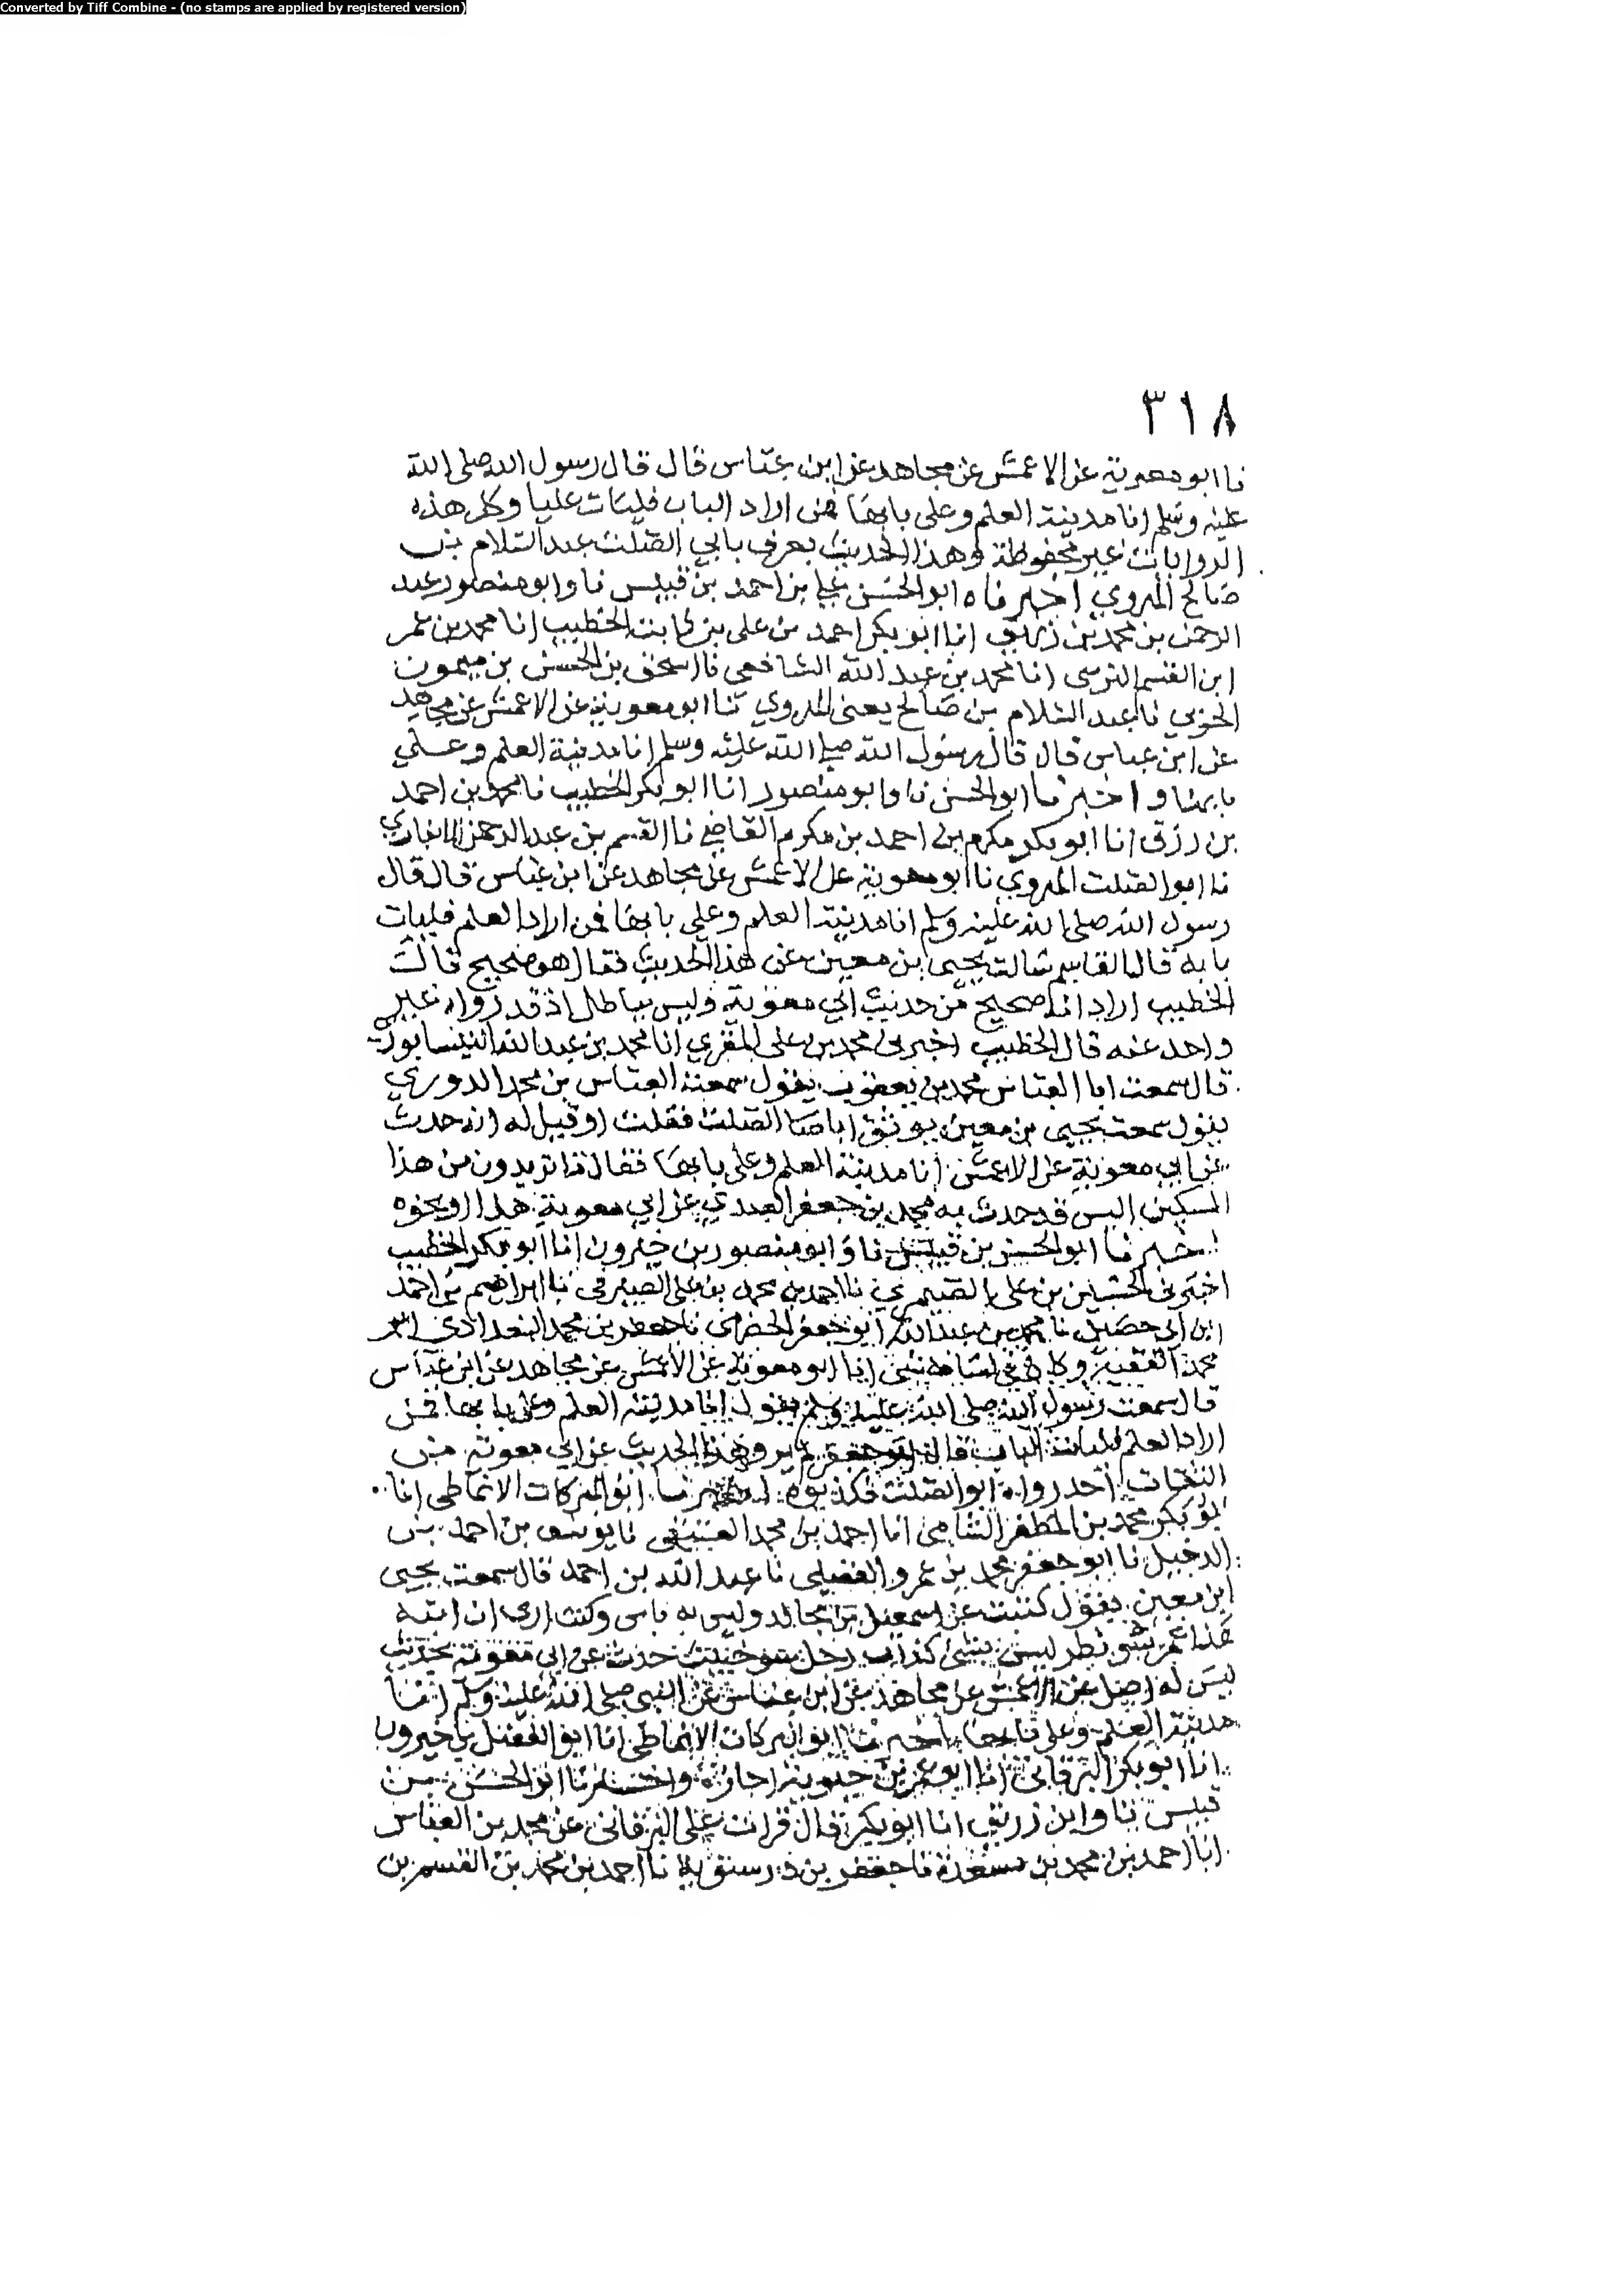 Converted by Tiff Combine - (no stamps are applied by registered version)
٣١٨
نا ابو معوية عن الاعمش عن مجاهد عن ابن عباس قال قال رسول الله صلى الله
عليه وسلم انا مدينة العلم وعلى بابها فمن اراد الباب فليات عليا وكل هذه
الروايات غير محفوظة وهذا الحديث يعرف بابي الصلت عبد السلام بن
صالح الهروي اخبرناه ابو الحسن علي بن احمد بن قبيس نا وابو منصور عبد
الرحمن بن محمد بن زريق انا ابو بكر احمد بن على بن ثابت الخطيب انا محمد بن عمر
ابن القسم النرسى انا محمد بن عبد الله الشافعى نا اسحق بن الحسن بن ميمون
الحربي نا عبد السلام بن صالح يعنى الهروي نا ابو معوية عن الاعمش عن مجاهد
عن ابن عباس قال قال رسول الله صلى الله عليه وسلم انا مدينة العلم وعلي
بابها واخبرنا ابو الحسن نا وابو منصور انا ابو بكر الخطيب نا محمد بن احمد
بن رزق انا ابو بكر مكرم بن احمد بن مكرم القاضي نا القسم بن عبد الرحمن الانباري
نا ابو الصلت الهروي نا ابو معوية عن الاعمش عن مجاهد عن ابن عباس قال قال
رسول الله صلى الله عليه وسلم انا مدينة العلم وعلي بابها فمن اراد العلم فليات
بابه قال القاسم سالت يحيى بن معين عن هذا الحديث فقال هو صحيح قالت
الخطيب اراد انه صحيح من حديث ابي معوية وليس بباطل اذ قد رواه غير
واحد عنه قال الخطيب اخبرنى محمد بن على المقري انا محمد بن عبد الله النيسابوري
قال سمعت ابا العباس محمد بن يعقوب يقول سمعت العباس بن محمد الدوري
يقول سمعت يحيى بن معين يوثق ابا الصلت فقلت او قيل له انه حدث
عن ابي معوية عن الاعمش انا مدينة العلم وعلى بابها فقال ما تريدون من هذا
المسكين اليس قد حدث به محمد بن جعفر العبدي عن ابي معوية هذا او نحوه
اخبرنا ابو الحسن بن قبيس نا وابو منصور بن خيرون انا ابو بكر الخطيب
اخبرنى الحسين بن على الصيمري نا احمد بن محمد بن على الصيرفى نا ابراهيم بن احمد
ابن ابي حصين نا محمد بن عبد الله ابو جعفر الحضرمى نا جعفر بن محمد البغدادي ابو
محمد الفقيه وكان في لسانه شئ انا ابو معوية عن الاعمش عن مجاهد عن ابن عباس
قال سمعت رسول الله صلى الله عليه وسلم يقول انا مدينة العلم وعلى بابها فمن
اراد العلم فليات الباب قال ابو جعفر لم يرو هذا الحديث عن ابي معوية من
الثقات احد رواه ابو الصلت فكذبوه اخبرنا ابو البركات الانماطى انا
ابو بكر محمد بن المظفر الشامى انا احمد بن محمد العتيقى نا يوسف بن احمد بن
الدخيل نا ابو جعفر محمد بن عمرو العقيلى نا عبد الله بن احمد قال سمعت يحيى
ابن معين يقول كتبت عن اسمعيل بن مجالد وليس به باس وكنت ارى ان ابنه
هذا عمر ليس بشئ كذاب رجل سو خبيث حدث عن ابي معوية بحديث
ليس له اصل عن الاعمش عن مجاهد عن ابن عباس عن النبي صلى الله عليه وسلم انا
مدينة العلم وعلى بابها اخبرنا ابو البركات الانماطى انا ابو الفضل بن خيرون
انا ابو بكر البرقانى انا ابو عمر بن حيوية اجازة واخبرنا ابو الحسن بن
قبيس نا وابن زريق انا ابو بكر قال قرات على البرقانى عن محمد بن العباس
انا احمد بن محمد بن مسعدة نا جعفر بن درستويه نا احمد بن محمد بن القسم بن